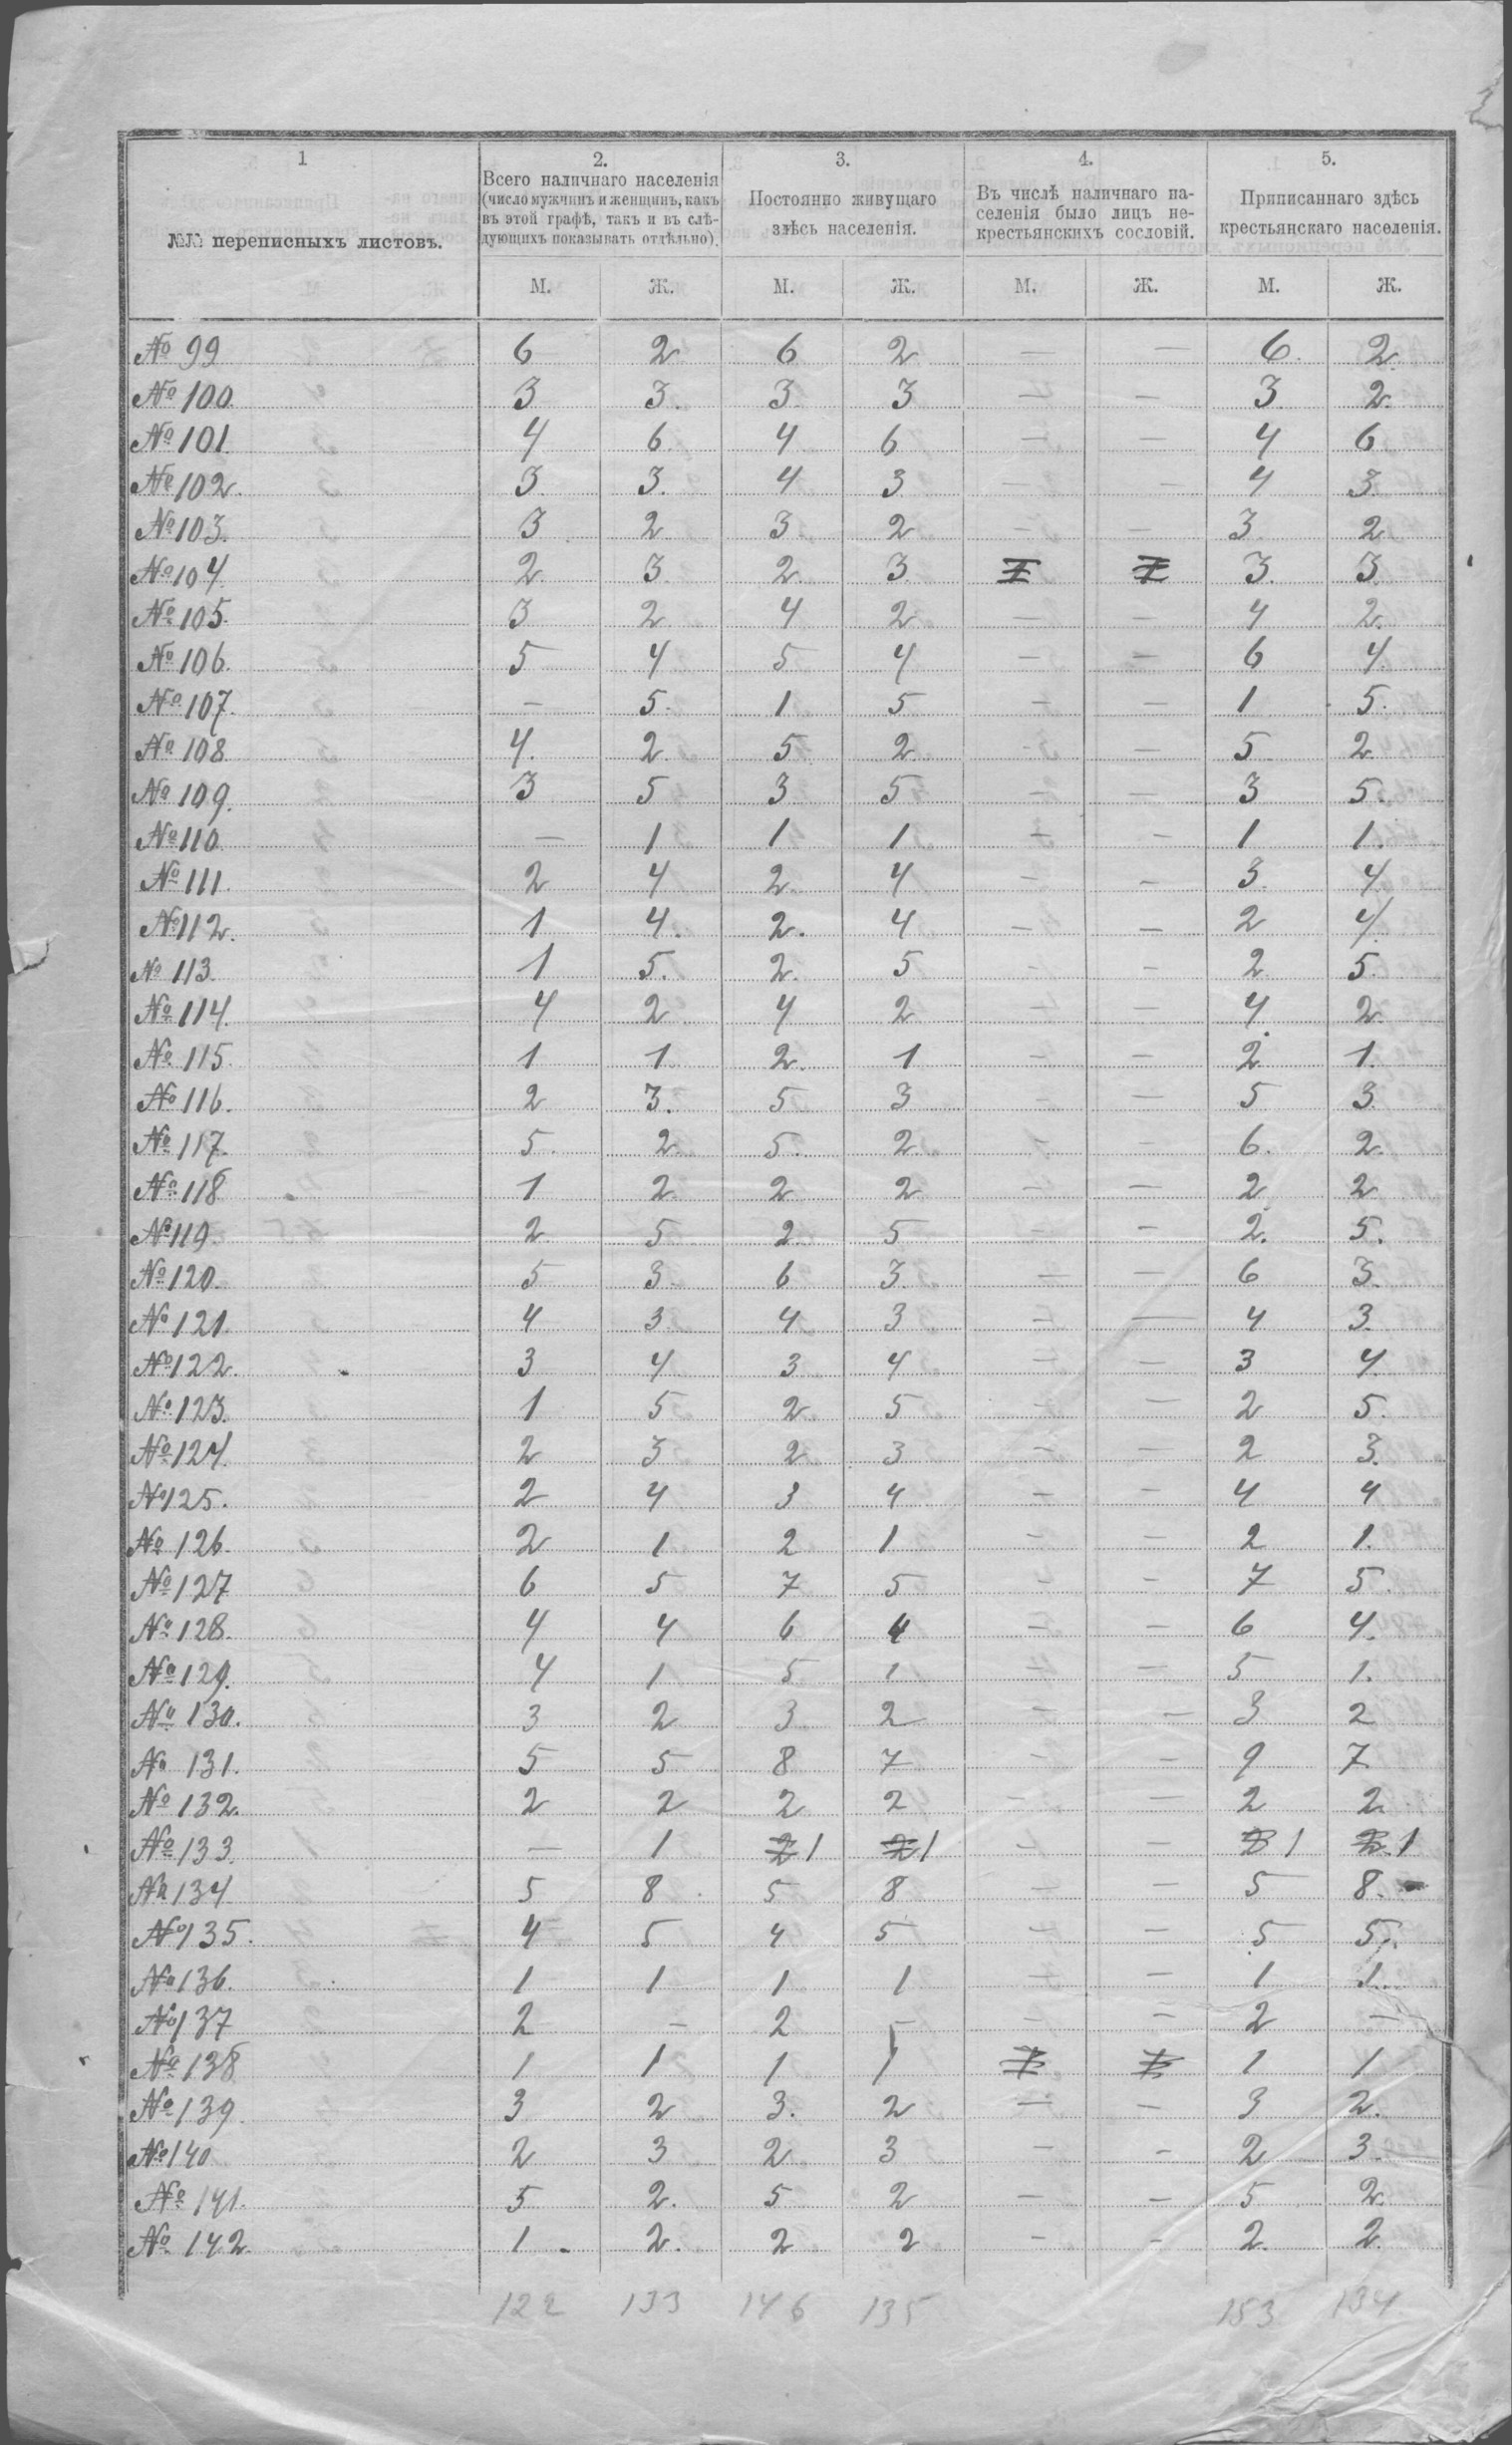 1 2. 3. 4. 5.
№№ переписныхъ листовъ.
Всего наличнаго населенія
(число мужчинъ и женщинъ, какъ
въ этой графѣ, такъ и въ слѣ-
дующихъ показывать отдѣльно).
Постоянно живущаго
здѣсь населенія.
Въ числѣ наличнаго на-
селенія было лицъ не-
крестьянскихъ сословій.
Приписаннаго здѣсь
крестьянскаго населенія.
М. Ж. М. Ж. М. Ж. М. Ж.
№ 99 6 2 6 2 — — 6. 2.
№ 100 3 3. 3. 3 — — 3. 2.
№ 101 4 6. 4 6 — — 4 6
№ 102. 3. 3. 4 3 — — 4 3.
№ 103. 3 2 3. 2 — — 3 2
№ 104 2 3 2. 3 3. 3
№ 105. 3 2 4 2 — — 4 2.
№ 106. 5 4 5 4 — — 6 4.
№ 107. — 5. 1 5 — — 1 5.
№ 108. 4. 2 5 2. — — 5 2.
№ 109. 3 5 3 5 — — 3 5.
№ 110. — 1 1 1 — — 1 1.
№ 111. 2 4 2. 4 — — 3. 4
№ 112. 1 4. 2. 4 — — 2 4.
№ 113. 1 5. 2. 5 — — 2 5.
№ 114. 4 2 4 2 — — 4. 2.
№ 115. 1 1 2. 1 — — 2. 1.
№ 116. 2 3. 5 3 — — 5 3.
№ 117. 5. 2. 5. 2 — — 6. 2.
№ 118 1 2 2 2 — — 2 2
№ 119. 2 5 2 5 — — 2. 5.
№ 120. 5 3. 6 3. — — 6 3.
№ 121. 4 3 4 3 — — 4 3.
№ 122. 3 4 3 4 — — 3 4.
№ 123. 1 5 2 5 — — 2 5.
№ 124. 2 3 2 3 — — 2 3.
№ 125. 2 4 3 4 — — 4 4
№ 126. 2 1 2 1 — — 2 1.
№ 127 6 5 7 5 — — 7 5.
№ 128. 4 4 6 4 — — 6 4.
№ 129. 4 1 5 1 — — 5 1.
№ 130. 3 2 3 2 — — 3 2
№ 131. 5 5 8 7 — — 9 7
№ 132. 2 2 2 2 — — 2 2.
№ 133. — 1 2 1 2 1 — — 2 1 2. 1
№ 134 5 8 5 8 — — 5 8.
№ 135. 4 5 4 5 — — 5 5.
№ 136. 1 1 1 1 — — 1 1.
№ 137 2 — 2 — — — 2 —
№ 138 1 1 1 1 1 1
№ 139. 3 2 3. 2 — — 3 2.
№ 140 2 3 2 3 — — 2 3.
№ 141. 5 2. 5 2 — — 5 2.
№ 142. 1. 2. 2 2 — — 2. 2.
122 133 146 135 153 134